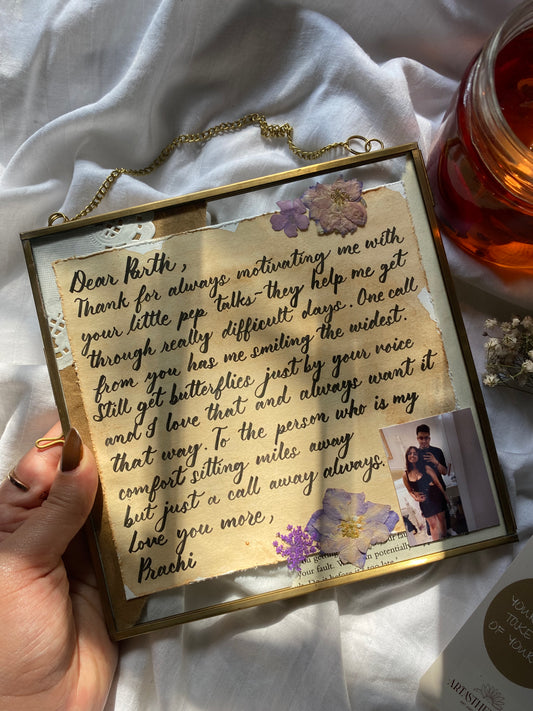 Dear Parth,
Thank for always motivating me with
your little pep talks- they help me get
through really difficult days. One call
from you has me smiling the widest.
Still get butterflies just by your voice
and I love that and always want it
that way. To the person who is my
comfort sitting miles away
but just a call away always.
Love you more,
Prachi
potentially
your fault.
before it's too late.
YOU
TAKE
OF YOUR